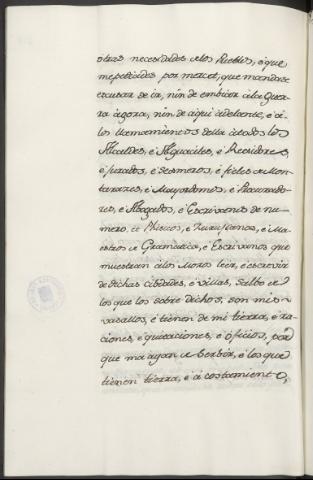 otras necesidades de los Pueblos, è que
me pediades por merced, que mandase
escusar de ir, nin de embiar à la Guer-
ra àgora, nin de aqui adelante, è à
los llamamientos della à todos los
Alcaldes, è Alguaciles, è Regidores,
è jurados, è sesmeros, è fieles è Mon-
tarazes, è Mayordomos, è Procurado-
res, è Abogados, è Escrivanos de nu-
mero, è Phisicos, è Zurugianos, è Ma-
estros de Gramatica, è Escrivanos que
muestran à los Mozos leer, è escrevir
de dichas cibdades, è villas, salbo de
los que los sobre dichos, son mis
vasallos, è tienen de mi tierra, è ra-
ciones, è quitaciones, è oficios, por
que me ayan de serbir, è los que
tienen tierra, è à costamiento,